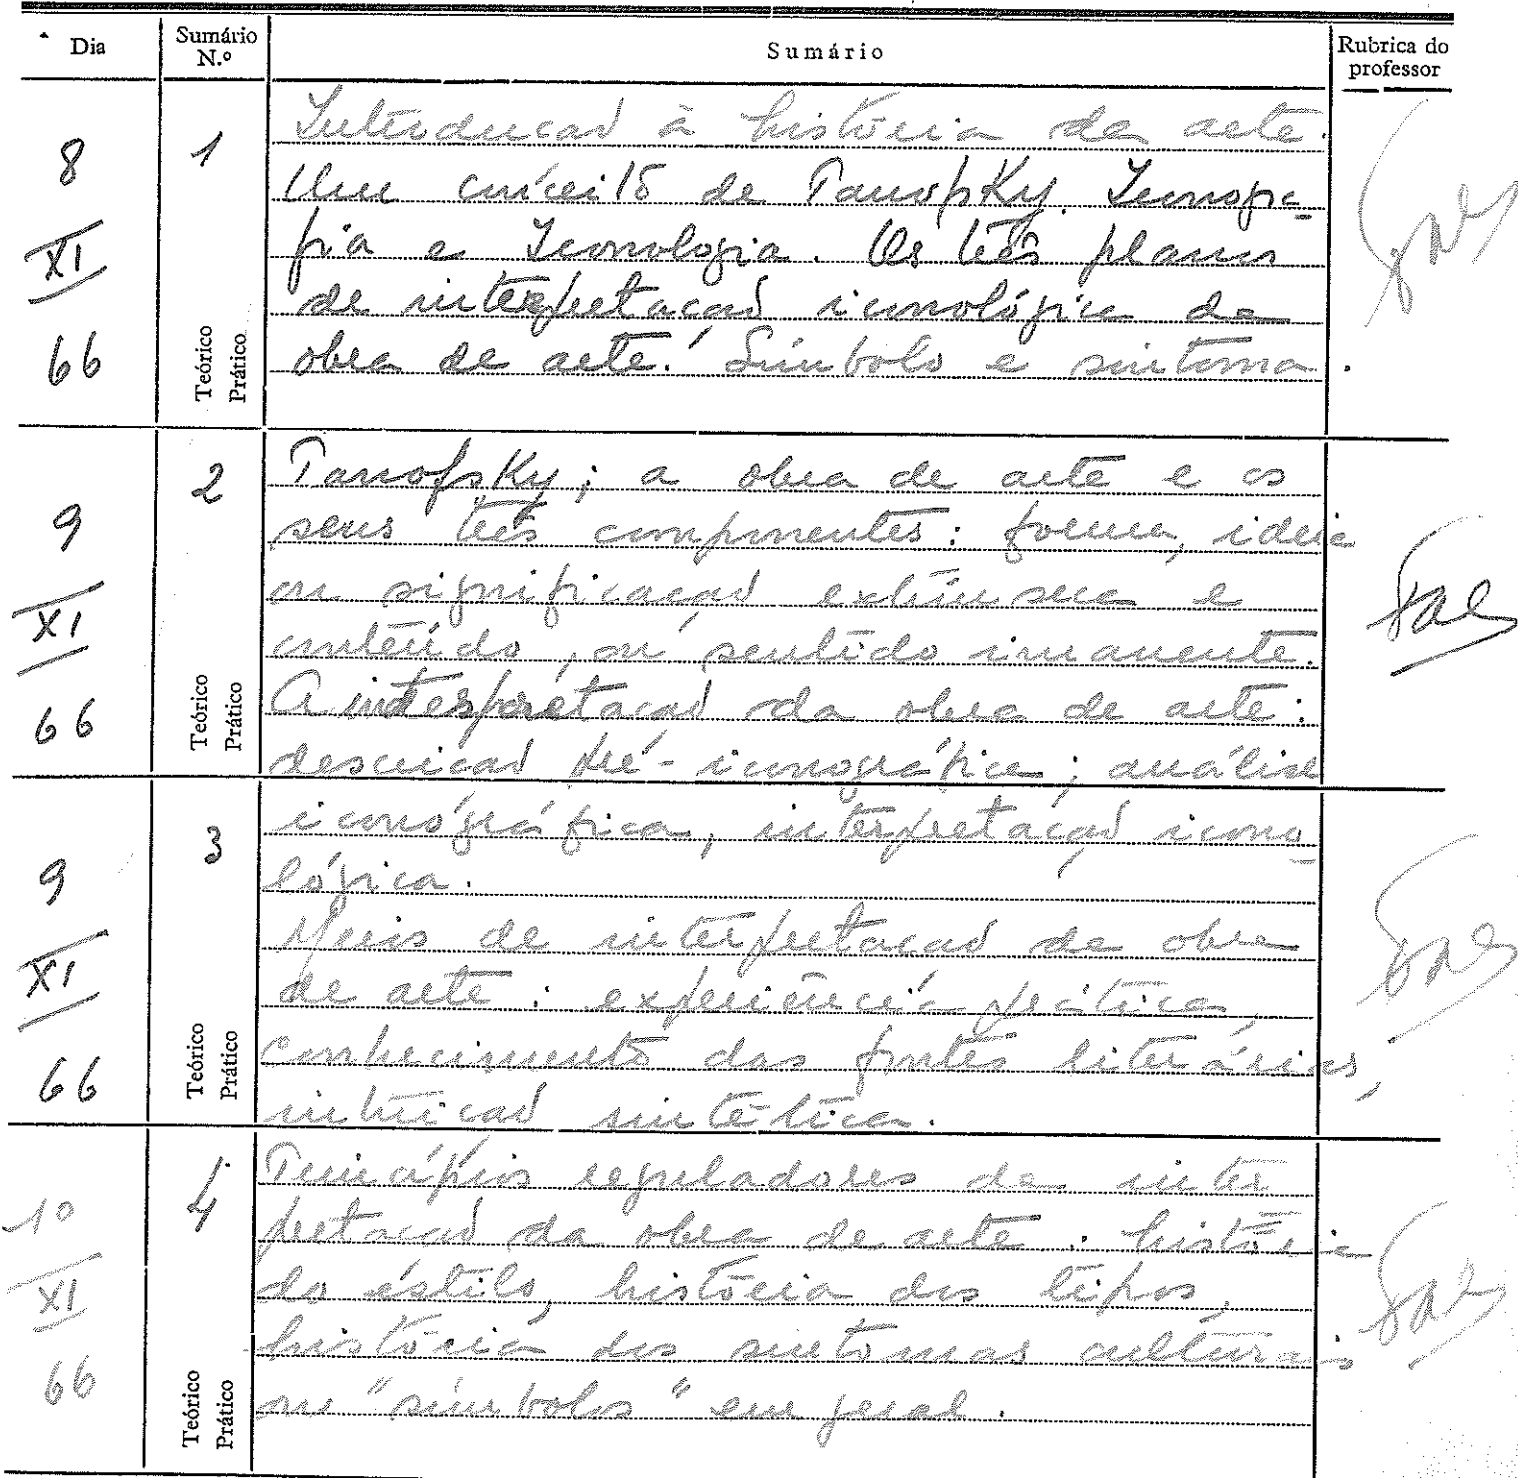 Dia Sumário N.º Sumário Rubrica do professor
8 XI 66
1
Teórico Prático
Introdução à história da arte.
Um conceito de Panofsky. Iconogra-
fia e Iconologia. Os três planos
de interpretação iconológica da
obra de arte. Símbolo e sintoma.
9 XI 66
2
Teórico Prático
Panofsky; a obra de arte e os
seus três componentes: forma, ideia
ou significação extrínseca e
conteúdo, ou sentido imanente.
A interpretação da obra de arte:
descrição pré-iconográfica; análise
9 XI 66
3
Teórico Prático
iconográfica, interpretação icono-
lógica.
Meios de interpretação da obra
de arte: experiência prática,
conhecimento das fontes literárias,
intuição sintética.
10 XI 66
4
Teórico Prático
Princípios reguladores da inter
pretação da obra de arte: história
do estilo, história dos tipos,
história dos sintomas culturais
ou "símbolos" em geral.